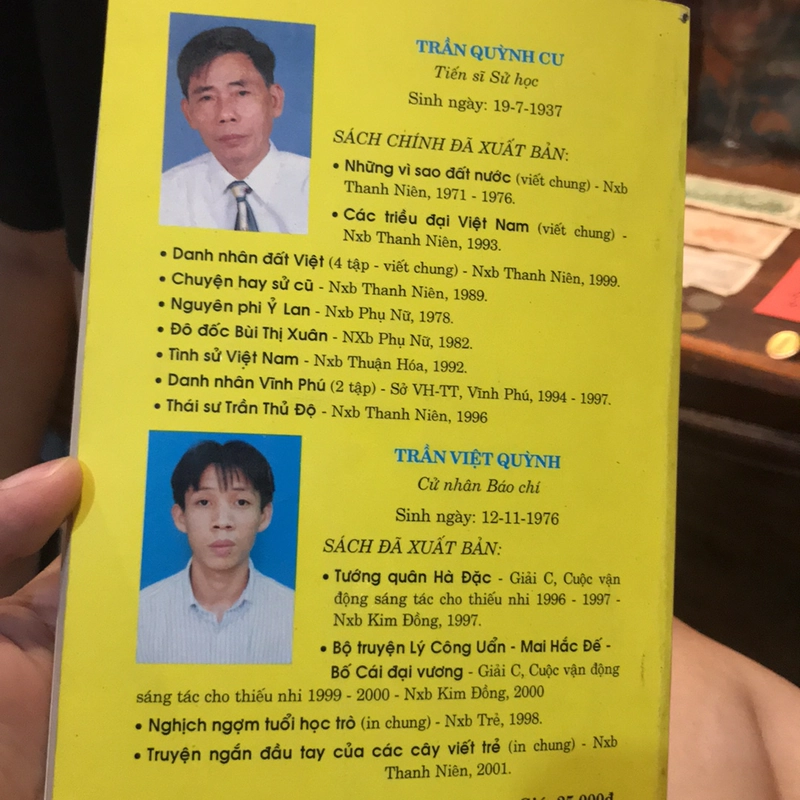 TRẦN QUỲNH CU
Tiến sĩ Sử học
Sinh ngày: 19-7-1937
SÁCH CHÍNH ĐÃ XUẤT BẢN:
• Những vì sao đất nước (viết chung) - Nxb
Thanh Niên, 1971 - 1976.
• Các triều đại Việt Nam (viết chung) -
Nxb Thanh Niên, 1993.
• Danh nhân đất Việt (4 tập - viết chung) - Nxb Thanh Niên, 1999.
• Chuyện hay sử cũ - Nxb Thanh Niên, 1989.
• Nguyên phi Ỷ Lan - Nxb Phụ Nữ, 1978.
• Đô đốc Bùi Thị Xuân - NXb Phụ Nữ, 1982.
• Tình sử Việt Nam - Nxb Thuận Hóa, 1992.
• Danh nhân Vĩnh Phú (2 tập) - Sở VH-TT, Vĩnh Phú, 1994 - 1997.
• Thái sư Trần Thủ Độ - Nxb Thanh Niên, 1996
TRẦN VIỆT QUỲNH
Cử nhân Báo chí
Sinh ngày: 12-11-1976
SÁCH ĐÃ XUẤT BẢN:
• Tướng quân Hà Đặc - Giải C, Cuộc vận
động sáng tác cho thiếu nhi 1996 - 1997 -
Nxb Kim Đồng, 1997.
• Bộ truyện Lý Công Uẩn - Mai Hắc Đế -
Bố Cái đại vương - Giải C, Cuộc vận động
sáng tác cho thiếu nhi 1999 - 2000 - Nxb Kim Đồng, 2000
• Nghịch ngợm tuổi học trò (in chung) - Nxb Trẻ, 1998.
• Truyện ngắn đầu tay của các cây viết trẻ (in chung) - Nxb
Thanh Niên, 2001.